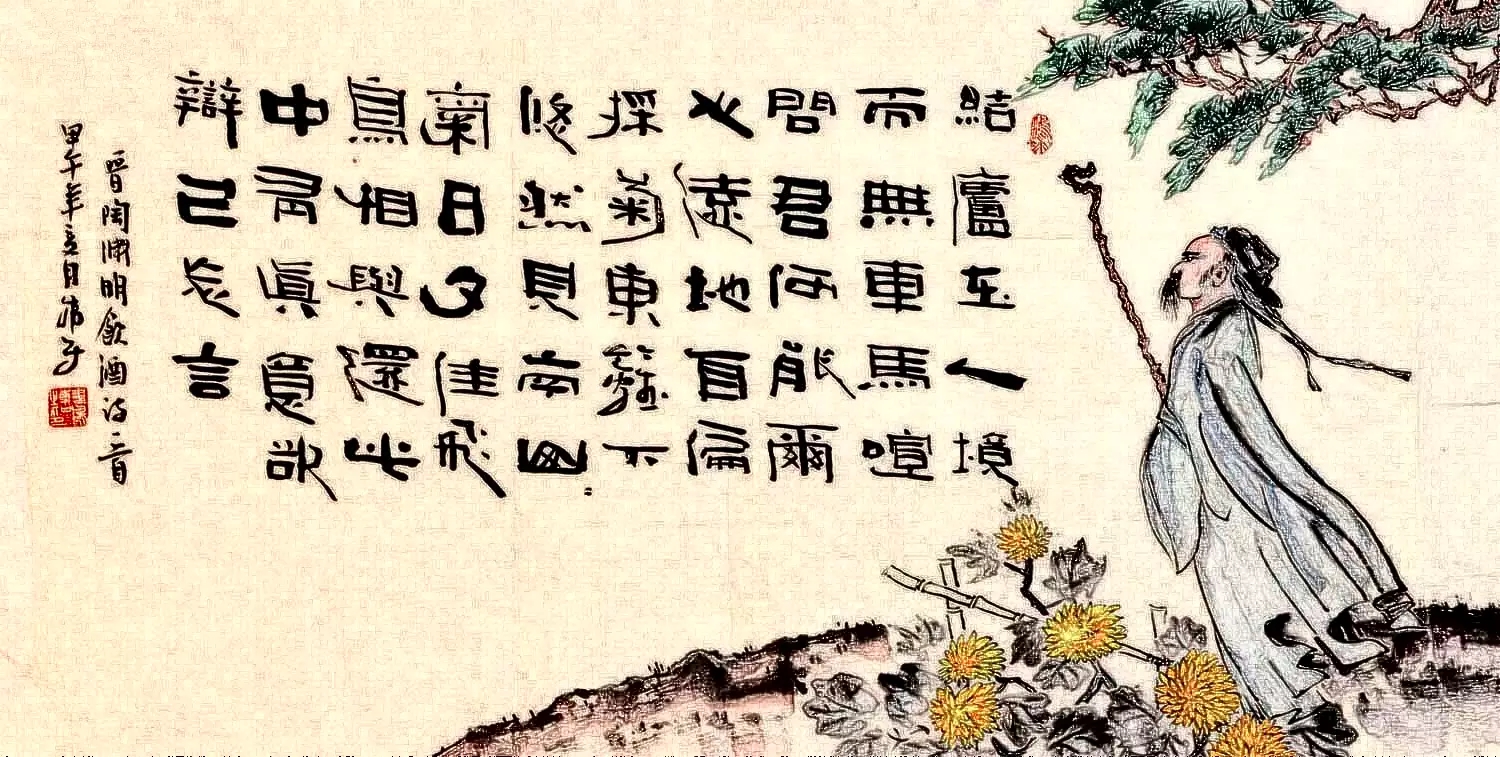 結廬在人境
而無車馬喧
問君何能爾
心遠地自偏
採菊東籬下
悠然見南山〻
氣日夕佳飛
鳥相與還此
中有眞意欲
辯已忘言
晉陶淵明飲酒诗一首
甲午年